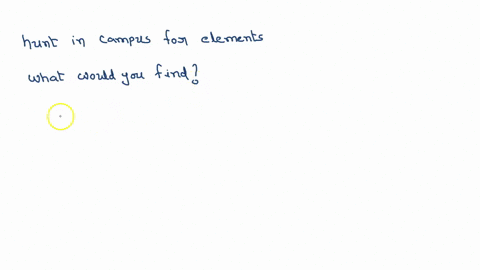 hunt in campus for elements
what would you find?